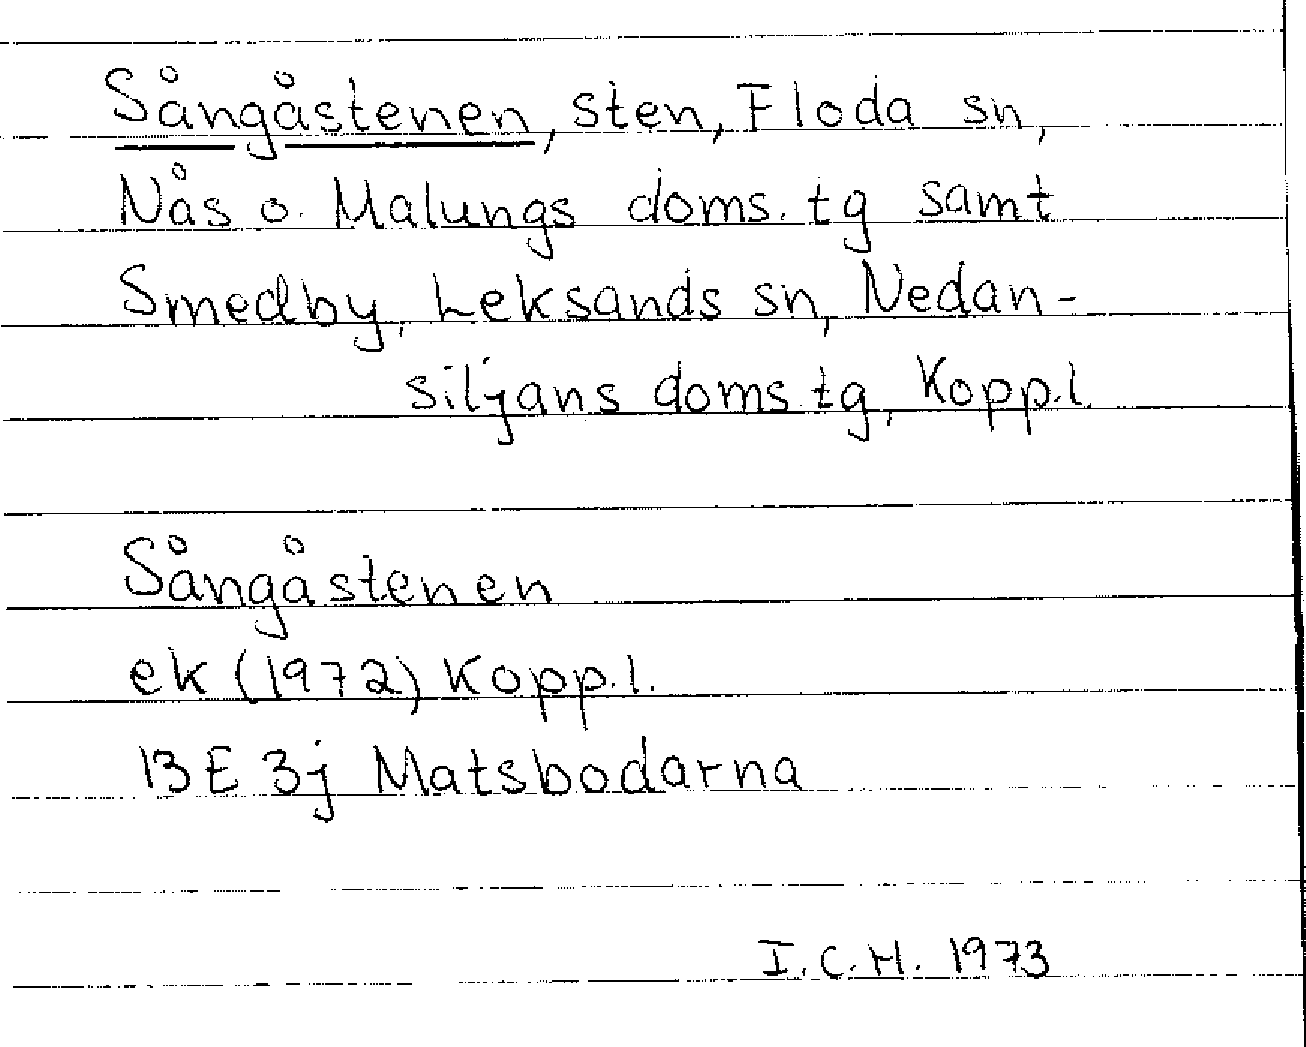 Sångåstenen, sten, Floda sn,
Nås o. Malungs doms. tg samt
Smedby, Leksands sn, Nedan-
siljans doms. tg, Kopp.l.
Sångåstenen
ek (1972) Kopp.l.
13E 3j Matsbodarna
I.C.H. 1973